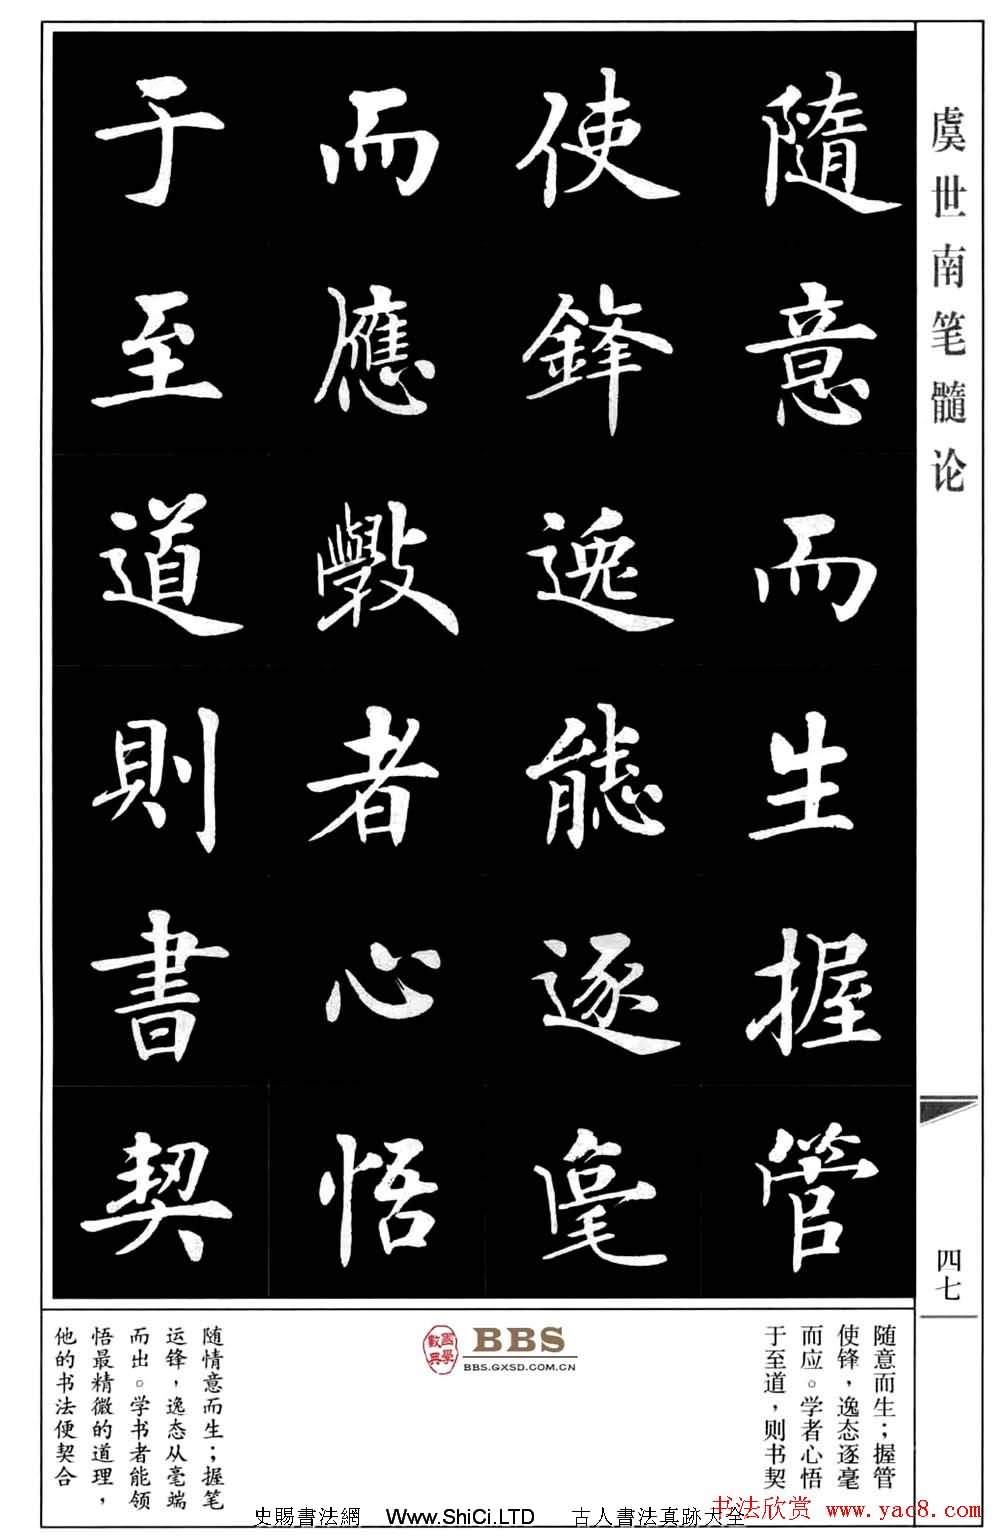 虞世南笔髓论
四七
隨意而生握管
使鋒逸態逐毫
而應斅者心悟
于至道則書契
随意而生；握管
使锋，逸态逐毫
而应。学者心悟
于至道，则书契
随情意而生；握笔
运锋，逸态从毫端
而出。学书者能领
悟最精微的道理，
他的书法便契合
國學數典
BBS
BBS.GXSD.COM.CN
史賜書法網 www.ShiCi.LTD 古人書法真跡大全
书法欣赏 www.yac8.com